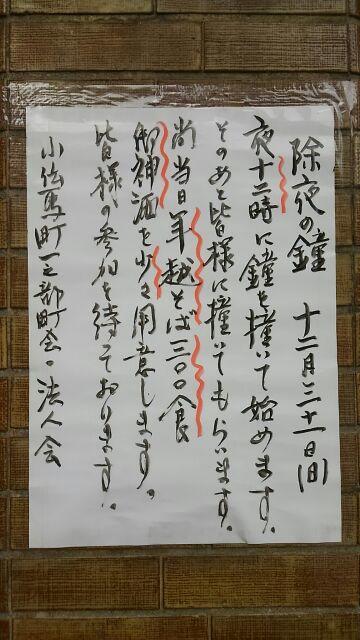 除夜の鐘 十二月三十一日(日)
夜十二時に鐘を撞いて始めます。
そのあと皆様に撞いてもらいます。
尚当日年越そば三〇〇食
御神酒を少々用意します。
皆様の参加を待っております。
小伝馬町一之部町会・法人会